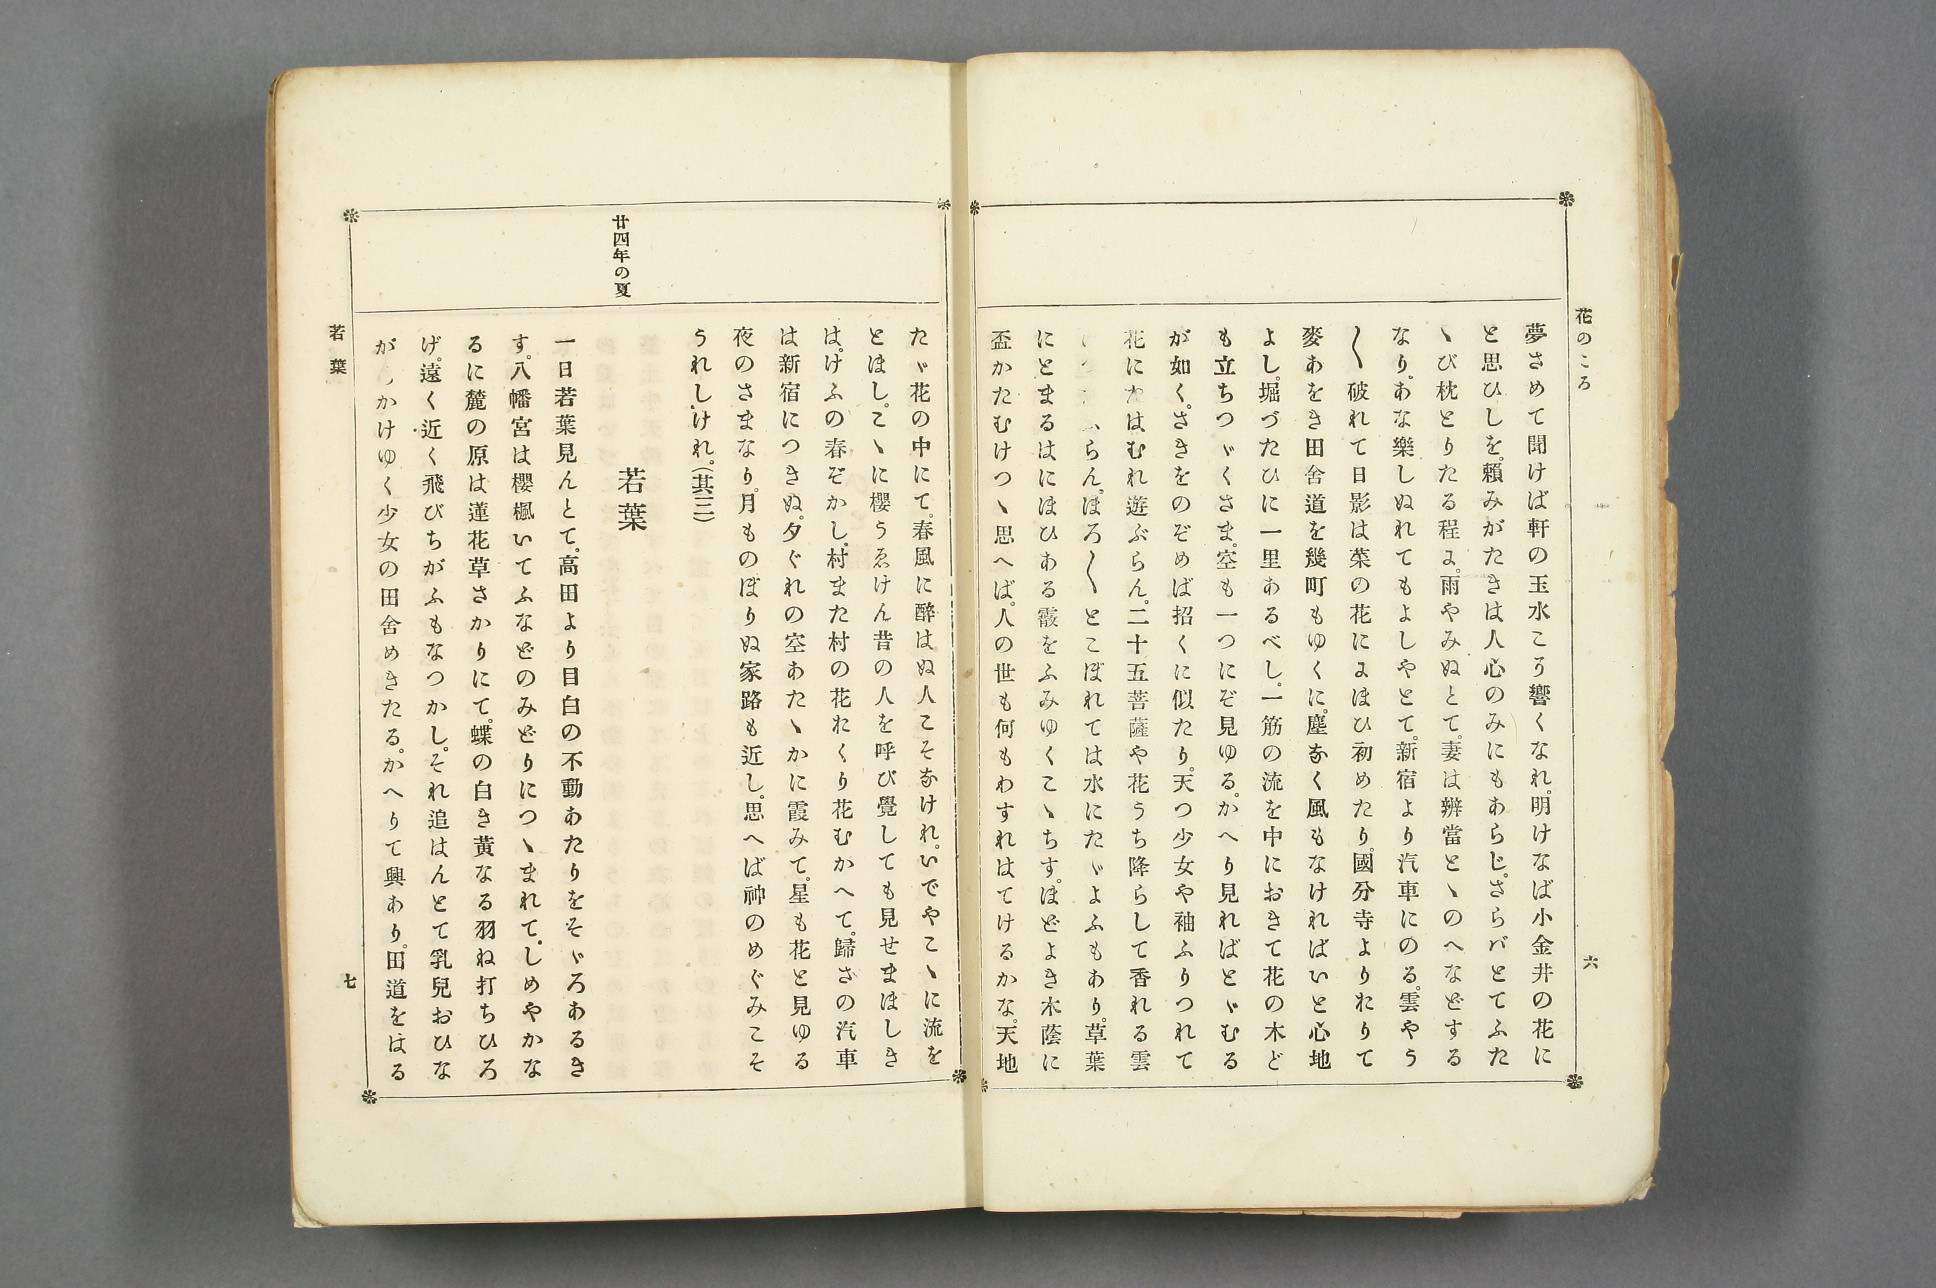 花のころ
六
夢さめて聞けば軒の玉水こそ響くなれ。明けなば小金井の花に
と思ひしを。頼みがたきは人心のみにもあらじ。さらバとてふた
ゝび枕とりたる程に。雨やみぬとて。妻は辨當とゝのへなどする
なり。あな樂しぬれてもよしやとて。新宿より汽車にのる。雲やう
〳〵破れて日影は菜の花ににほひ初めたり。國分寺よりおりて
麥あをき田舎道を幾町もゆくに。塵なく風もなければいと心地
よし。堀づたひに一里あるべし。一筋の流を中におきて花の木ど
も立ちつゞくさま。空も一つにぞ見ゆる。かへり見ればとゞむる
が如く。さきをのぞめば招くに似たり。天つ少女や袖ふりつれて
花にたはむれ遊ぶらん。二十五菩薩や花うち降らして香れる雲
らん。ほろ〳〵とこぼれては水にたゞよふもあり。草葉
にとまるはにほひある霰をふみゆくこゝちす。ほどよき木蔭に
盃かたむけつゝ思へば。人の世も何もわすれはてけるかな。天地
たゞ花の中にて。春風に醉はぬ人こそなけれ。いでやこゝに流を
とほし。こゝに櫻うゑけん昔の人を呼び覺しても見せまほしき
は。けふの春ぞかし。村また村の花おくり花むかへて。歸さの汽車
は新宿につきぬ。夕ぐれの空あたゝかに霞みて。星も花と見ゆる
夜のさまなり。月ものぼりぬ家路も近し。思へば神のめぐみこそ
うれしけれ。(其三)
廿四年の夏
若葉
一日若葉見んとて。高田より目白の不動あたりをそゞろあるき
す。八幡宮は櫻楓いてふなどのみどりにつゝまれて。しめやかな
るに麓の原は蓮花草さかりにて。蝶の白き黄なる羽ね打ちひろ
げ。遠く近く飛びちがふもなつかし。それ追はんとて乳兒おひな
がらかけゆく少女の田舎めきたる。かへりて興あり。田道をはる
若葉
七